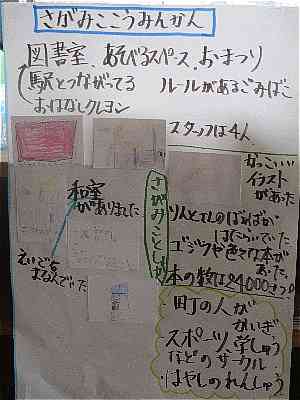 さがみここうみんかん
図書室、あそべるスペース、おまつり
駅とつながってる
ルールがあるごみばこ
おはなしクレヨン
スタッフは4人
かっこいい
イラスト
があった
和室
がありました
さがみことしょ
はたらいていた
ゴジラや色々な本が
あった。
本の数は24000さつ
町の人が
かいぎ
スポーツ、学しゅう
などのサークル
はやしのれんしゅう